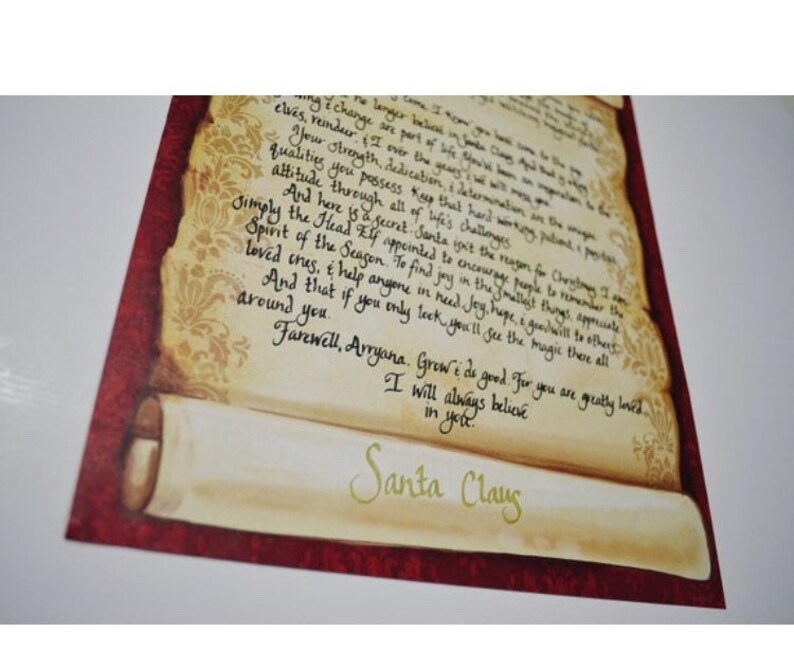 come. I know you have come to the
no longer believe in Santa Claus. And that is okay.
& change are part of life. You've been an inspiration to the
elves, reindeer, & I over the years & we will miss you.
Your strength, dedication, & determination are the unique
qualities you possess. Keep that hard-working, patient, & positive
attitude through all of life's challenges.
And here is a secret: Santa isn't the reason for Christmas. I am
simply the Head Elf appointed to encourage people to remember the
Spirit of the Season. To find joy in the smallest things, appreciate
loved ones, & help anyone in need. Joy, hope, & goodwill to others.
And that if you only look, you'll see the magic there all
around you.
Farewell, Arryana. Grow & do good. For you are greatly loved.
I will always believe
in you.
Santa Claus